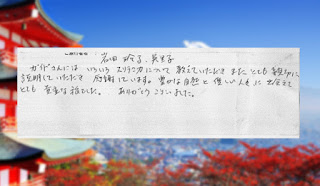 岩田 玲子、英里子
ガイドさんには いろいろ スリランカについて 教えていただき また とても 親切に
説明していただき 感謝しています。豊かな自然と 優しい人々に 出会えて
とても 充実な旅でした。 ありがとうございました。